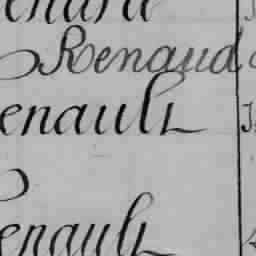 enard
Renaud
enault
enault